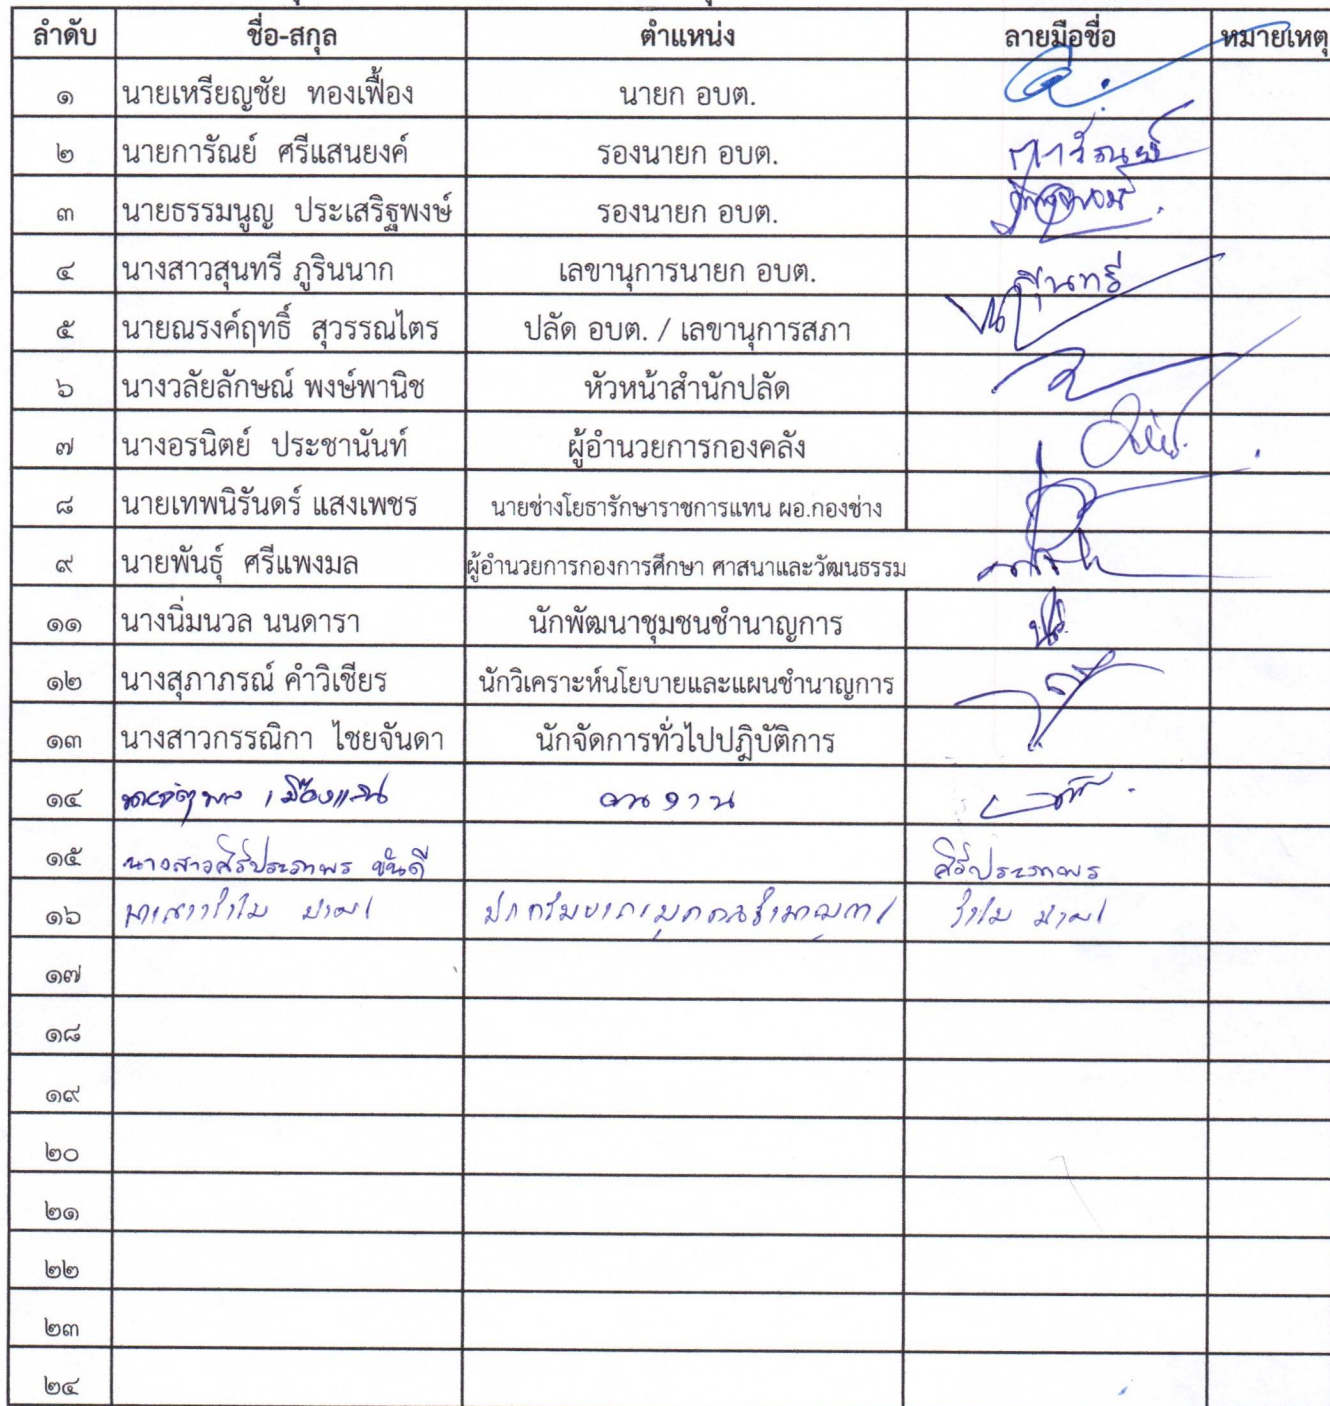 ลำดับ ชื่อ-สกุล ตำแหน่ง ลายมือชื่อ หมายเหตุ
๑ นายเหรียญชัย ทองเฟื้อง นายก อบต.
๒ นายการัณย์ ศรีแสนยงค์ รองนายก อบต. การัณย์
๓ นายธรรมนูญ ประเสริฐพงษ์ รองนายก อบต.
๔ นางสาวสุนทรี ภูรินนาก เลขานุการนายก อบต. สุนทรี
๕ นายณรงค์ฤทธิ์ สุวรรณไตร ปลัด อบต. / เลขานุการสภา
๖ นางวลัยลักษณ์ พงษ์พานิช หัวหน้าสำนักปลัด
๗ นางอรนิตย์ ประชานันท์ ผู้อำนวยการกองคลัง
๘ นายเทพนิรันดร์ แสงเพชร นายช่างโยธารักษาราชการแทน ผอ.กองช่าง
๙ นายพันธุ์ ศรีแพงมล ผู้อำนวยการกองการศึกษา ศาสนาและวัฒนธรรม
๑๑ นางนิ่มนวล นนดารา นักพัฒนาชุมชนชำนาญการ
๑๒ นางสุภาภรณ์ คำวิเชียร นักวิเคราะห์นโยบายและแผนชำนาญการ
๑๓ นางสาวกรรณิกา ไชยจันดา นักจัดการทั่วไปปฎิบัติการ
๑๔ เมืองแสน คนงาน
๑๕ นางสาวศิริประภาพร ขันดี ศิริประภาพร
๑๖
๑๗
๑๘
๑๙
๒๐
๒๑
๒๒
๒๓
๒๔